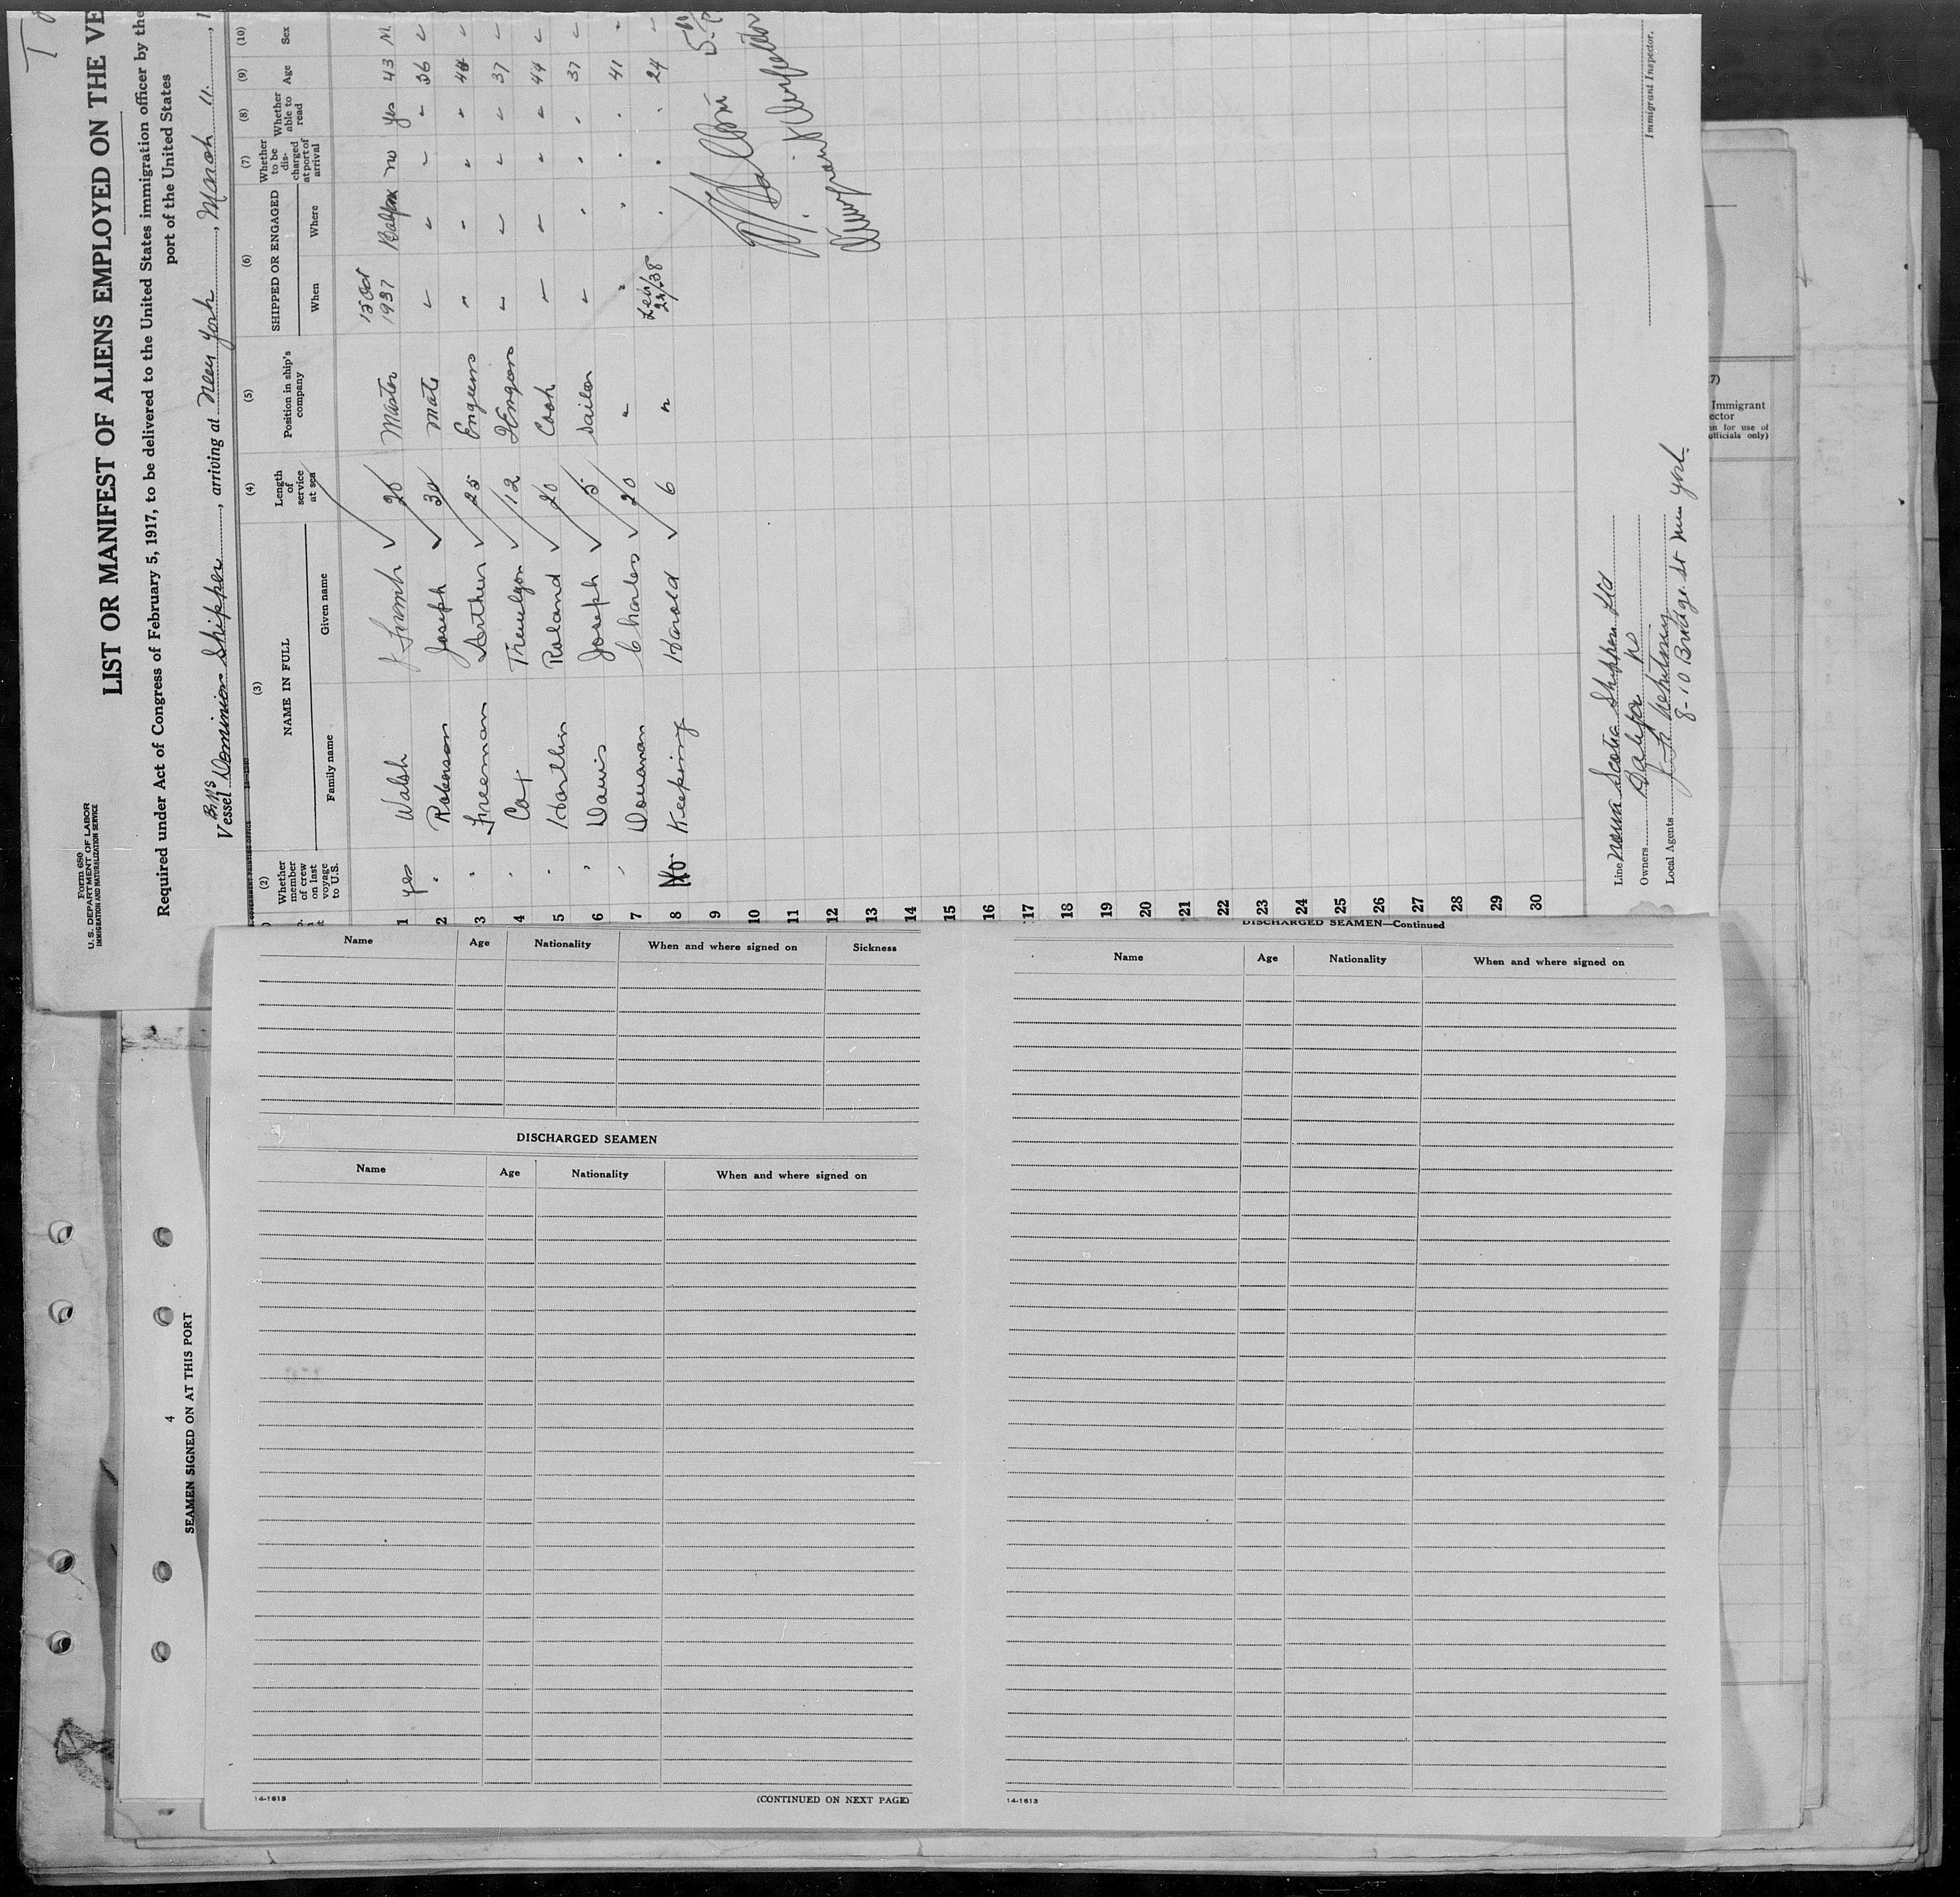 Form 680
U. S. DEPARTMENT OF LABOR
IMMIGRATION AND NATURALIZATION SERVICE
LIST OR MANIFEST OF ALIENS EMPLOYED ON THE VE
Required under Act of Congress of February 5, 1917, to be delivered to the United States immigration officer by the
port of the United States
Vessel Dominion Shipper, arriving at New York, March 11, 1
(2) (3) (4) (5) (6) (7) (8) (9) (10)
Whether member of crew on last voyage to U.S. NAME IN FULL Family name Given name Length of service at sea Position in ship's company SHIPPED OR ENGAGED When Where Whether to be discharged at port of arrival Whether able to read Age Sex
1 yes Walsh 20 Master 1937 Halifax no yes 43 M
2 " Roberson Joseph 30 Mate " " " " 36 "
3 " Freeman Arthur 25 " " " " "
4 " Cox 12 " " " " 37 "
5 " Roland 20 Cook " " " " 44 "
6 " Davis Joseph 5 Sailor " " " " 37 "
7 " Charles 20 " " " " " 41 "
8 No Keeping Harold 6 " 24/38 " " " 24 "
9
10
11
12
13
14
15
16
17
18
19
20
21
22
23
24
25
26
27
28
29
30
Line Nova Scotia Shipper Ltd
Owners Halifax NS
Local Agents
8-10 Bridge St New York
Immigrant Inspector.
7)
Immigrant
ector
n for use of
officials only)
Name Age Nationality When and where signed on Sickness
DISCHARGED SEAMEN
Name Age Nationality When and where signed on
14-1613
(CONTINUED ON NEXT PAGE)
DISCHARGED SEAMEN—Continued
Name Age Nationality When and where signed on
14-1613
4
SEAMEN SIGNED ON AT THIS PORT